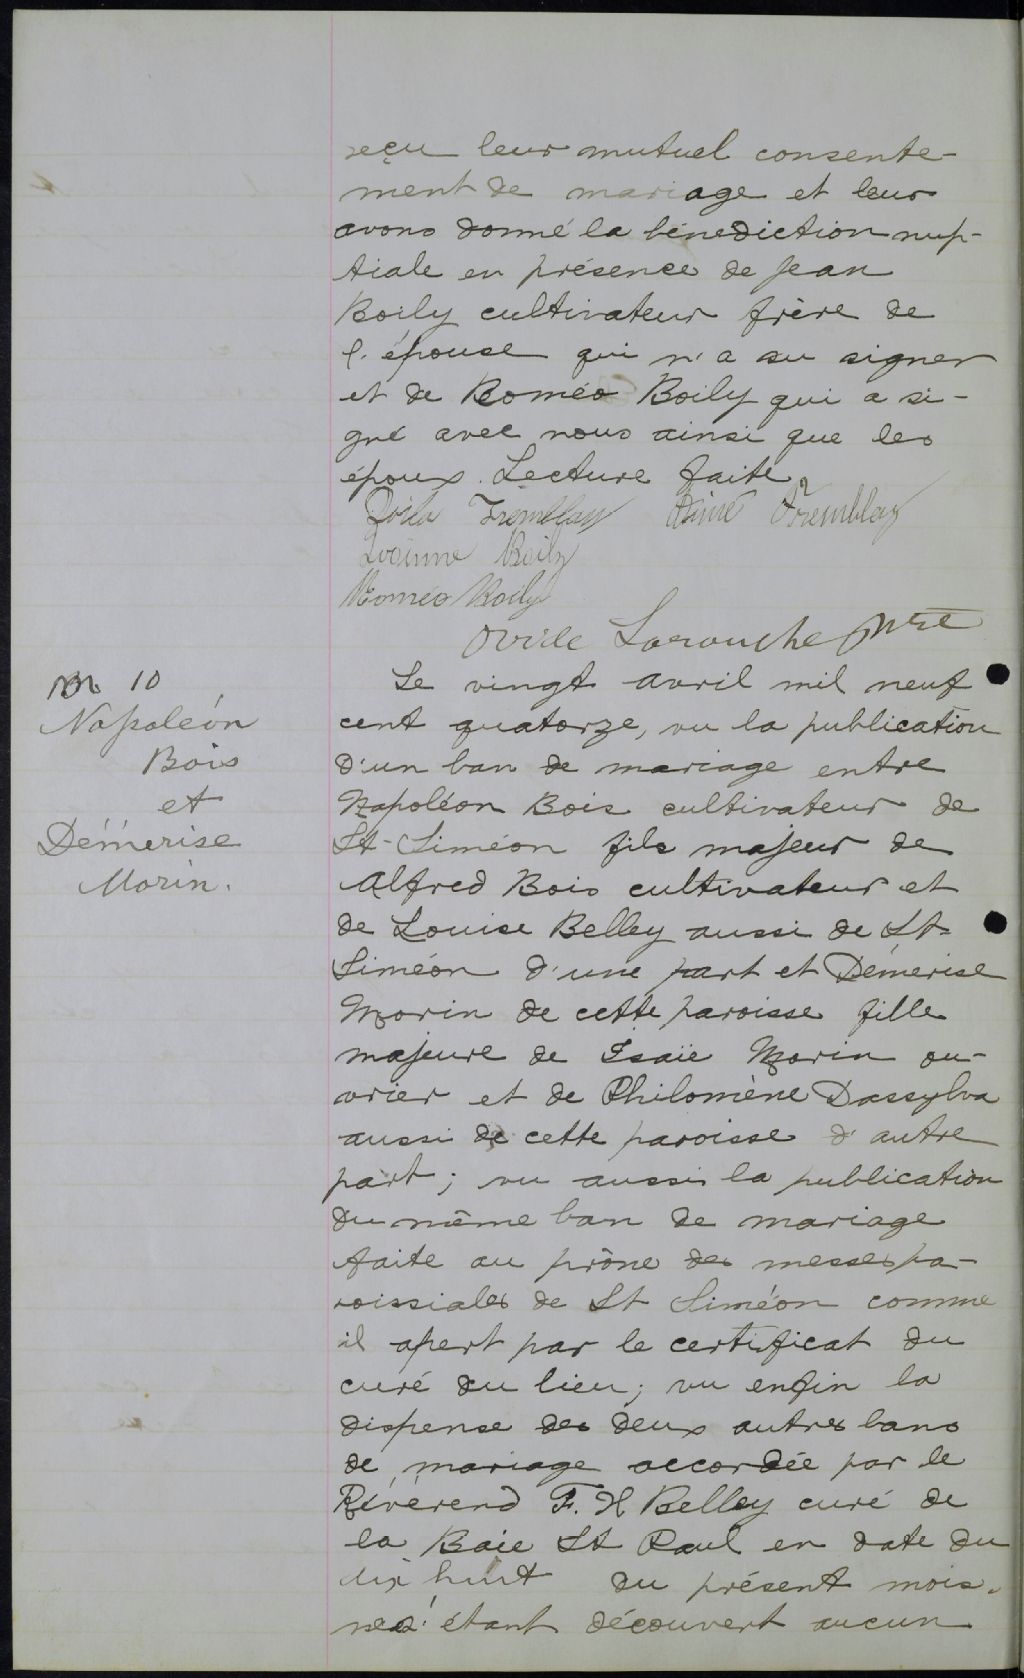 reçu leur mutuel consente-
ment de mariage et leur
avons donné la bénédiction nup-
tiale en présence de Jean
Boily cultivateur frère de
l'épouse qui n'a su signer
et de Roméo Boily qui a si-
gné avec nous ainsi que les
époux. Lecture faite
Tremblay Aimé Tremblay
Boily
Roméo Boily
Ovide Larouche Ptre
M 10
Napoléon
Bois
et
Démerise
Morin.
Le vingt avril mil neuf
cent quatorze, vu la publication
d'un ban de mariage entre
Napoléon Bois cultivateur de
St-Siméon fils majeur de
Alfred Bois cultivateur et
de Louise Belley aussi de St-
Siméon d'une part et Démerise
Morin de cette paroisse fille
majeure de Isaïe Morin ou-
vrier et de Philomène Dassylva
aussi de cette paroisse d'autre
part; vu aussi la publication
du même ban de mariage
faite au prône des messes pa-
roissiales de St Siméon comme
il apert par le certificat du
curé du lieu; vu enfin la
dispense des deux autres bans
de mariage accordée par le
Révérend F. H Belley curé de
la Baie St Paul en date du
dix huit du présent mois.
ne s'étant découvert aucun